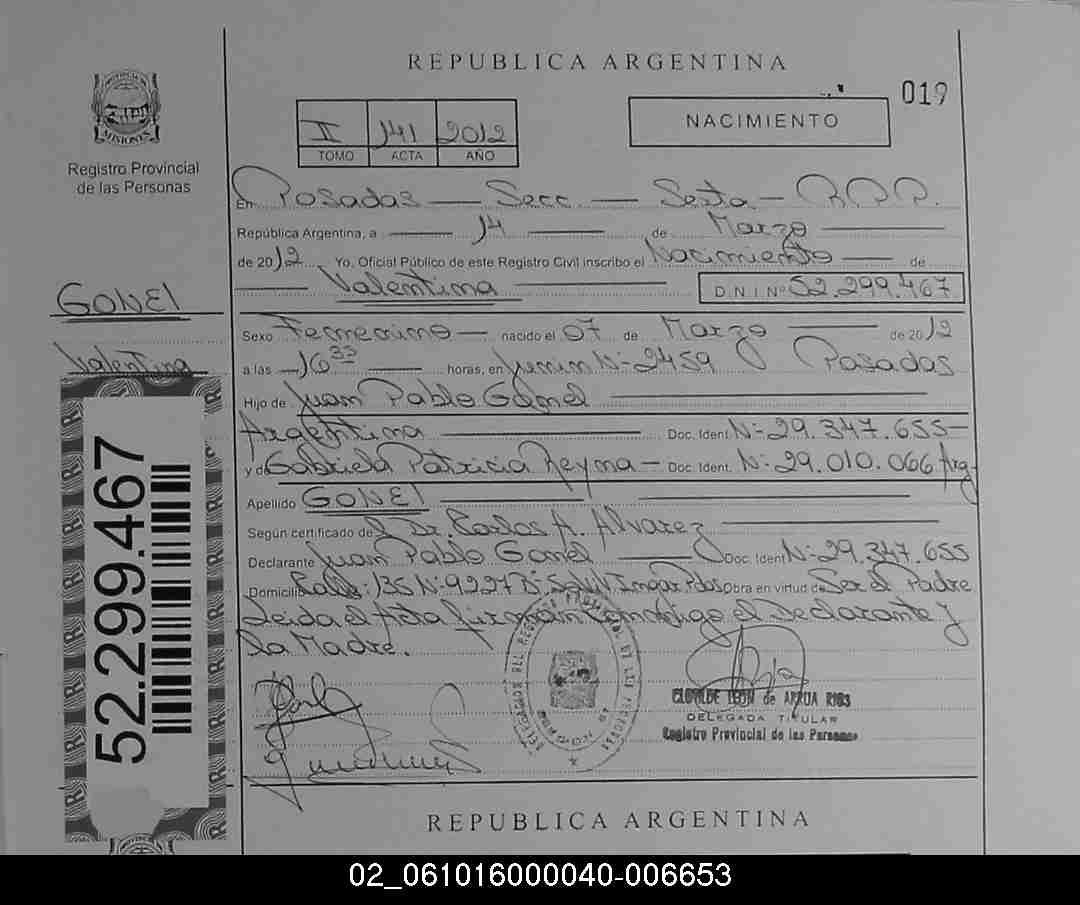 REPUBLICA ARGENTINA
019
II 141 2012
TOMO ACTA AÑO
NACIMIENTO
PROVINCIA DE
MISIONES
Registro Provincial
de las Personas
En Posadas — Secc. — Sexta — R.P.P.
República Argentina, a 14 de Marzo
de 2012 Yo, Oficial Público de este Registro Civil inscribo el Nacimiento de
Valentina D.N.I Nº 52.299.467
GONEL
Valentina
Sexo Femenino nacido el 07 de Marzo de 2012
a las 16 33 horas, en Junin Nº 2459 Posadas
Hijo de Juan Pablo Gonel
Argentina Doc. Ident. Nº 29.347.655
y de Gabriela Patricia Reyna Doc. Ident. Nº 29.010.066 Arg
Apellido GONEL
Según certificado del Dr. Carlos A. Alvarez
Declarante Juan Pablo Gonel Doc. Ident Nº 29.347.655
Domicilio Calle: 135 Nº 9227 Bº Pdas Obra en virtud de Ser el Padre
Leida el Acta firman conmigo el Declarante y
la Madre.
52.299.467
CLOTILDE LEON de ARRUA RIOS
DELEGADA TITULAR
Registro Provincial de las Personas
REPUBLICA ARGENTINA
02_061016000040-006653